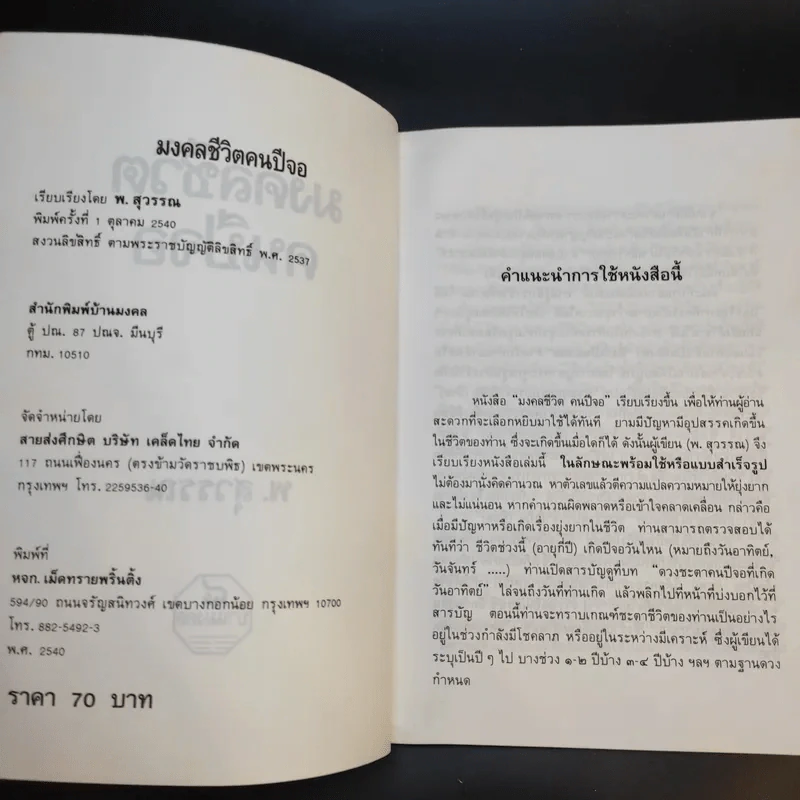 มงคลชีวิตคนปีจอ
เรียบเรียงโดย พ. สุวรรณ
พิมพ์ครั้งที่ 1 ตุลาคม 2540
สงวนลิขสิทธิ์ ตามพระราชบัญญัติลิขสิทธิ์ พ.ศ. 2537
สำนักพิมพ์บ้านมงคล
ตู้ ปณ. 87 ปณจ. มีนบุรี
กทม. 10510
จัดจำหน่ายโดย
สายส่งศึกษิต บริษัท เคล็ดไทย จำกัด
117 ถนนเฟื่องนคร (ตรงข้ามวัดราชบพิธ) เขตพระนคร
กรุงเทพฯ โทร. 2259536-40
พิมพ์ที่
หจก. เม็ดทรายพริ้นติ้ง
594/90 ถนนจรัญสนิทวงศ์ เขตบางกอกน้อย กรุงเทพฯ 10700
โทร. 882-5492-3
พ.ศ. 2540
ราคา 70 บาท
คำแนะนำการใช้หนังสือนี้
หนังสือ "มงคลชีวิต คนปีจอ" เรียบเรียงขึ้น เพื่อให้ท่านผู้อ่าน
สะดวกที่จะเลือกหยิบมาใช้ได้ทันที ยามมีปัญหามีอุปสรรคเกิดขึ้น
ในชีวิตของท่าน ซึ่งจะเกิดขึ้นเมื่อใดก็ได้ ดังนั้นผู้เขียน (พ. สุวรรณ) จึง
เรียบเรียงหนังสือเล่มนี้ ในลักษณะพร้อมใช้หรือแบบสำเร็จรูป
ไม่ต้องมานั่งคิดคำนวณ หาตัวเลขแล้วตีความแปลความหมายให้ยุ่งยาก
และไม่แน่นอน หากคำนวณผิดพลาดหรือเข้าใจคลาดเคลื่อน กล่าวคือ
เมื่อมีปัญหาหรือเกิดเรื่องยุ่งยากในชีวิต ท่านสามารถตรวจสอบได้
ทันทีว่า ชีวิตช่วงนี้ (อายุกี่ปี) เกิดปีจอวันไหน (หมายถึงวันอาทิตย์,
วันจันทร์ .....) ท่านเปิดสารบัญดูที่บท "ดวงชะตาคนปีจอที่เกิด
วันอาทิตย์" ไล่จนถึงวันที่ท่านเกิด แล้วพลิกไปที่หน้าที่บ่งบอกไว้ที่
สารบัญ ตอนนี้ท่านจะทราบเกณฑ์ชะตาชีวิตของท่านเป็นอย่างไร
อยู่ในช่วงกำลังมีโชคลาภ หรืออยู่ในระหว่างมีเคราะห์ ซึ่งผู้เขียนได้
ระบุเป็นปี ๆ ไป บางช่วง ๑-๒ ปีบ้าง ๓-๔ ปีบ้าง ฯลฯ ตามฐานดวง
กำหนด